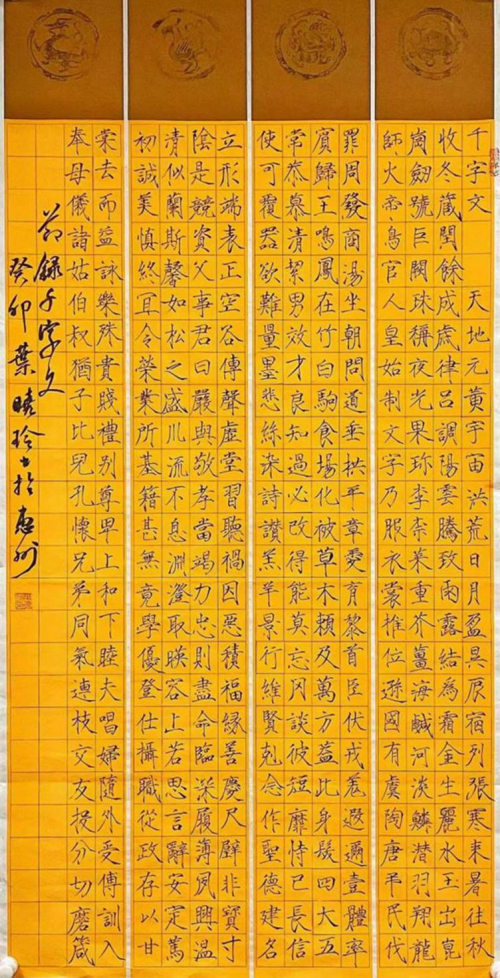 千字文　天地元黃宇宙洪荒日月盈昃辰宿列張寒來暑往秋
收冬藏閏餘成歲律呂調陽雲騰致雨露結為霜金生麗水玉出崑
崗劍號巨闕珠稱夜光果珍李柰菜重芥薑海鹹河淡鱗潛羽翔龍
師火帝鳥官人皇始制文字乃服衣裳推位遜國有虞陶唐弔民伐
罪周發商湯坐朝問道垂拱平章愛育黎首臣伏戎羌遐邇壹體率
賓歸王鳴鳳在竹白駒食場化被草木賴及萬方蓋此身髮四大五
常恭慕清絜男效才良知過必改得能莫忘罔談彼短靡恃己長信
使可覆器欲難量墨悲絲染詩讚羔羊景行維賢克念作聖德建名
立形端表正空谷傳聲虛堂習聽禍因惡積福緣善慶尺璧非寶寸
陰是競資父事君曰嚴與敬孝當竭力忠則盡命臨深履薄夙興溫
清似蘭斯馨如松之盛川流不息淵澄取暎容上若思言辭安定篤
初誠美慎終宜令榮業所基籍甚無竟學優登仕攝職從政存以甘
棠去而益詠樂殊貴賤禮別尊卑上和下睦夫唱婦隨外受傅訓入
奉母儀諸姑伯叔猶子比兒孔懷兄弟同氣連枝交友投分切磨箴
節錄千字文
癸卯葉曉玲書於惠州